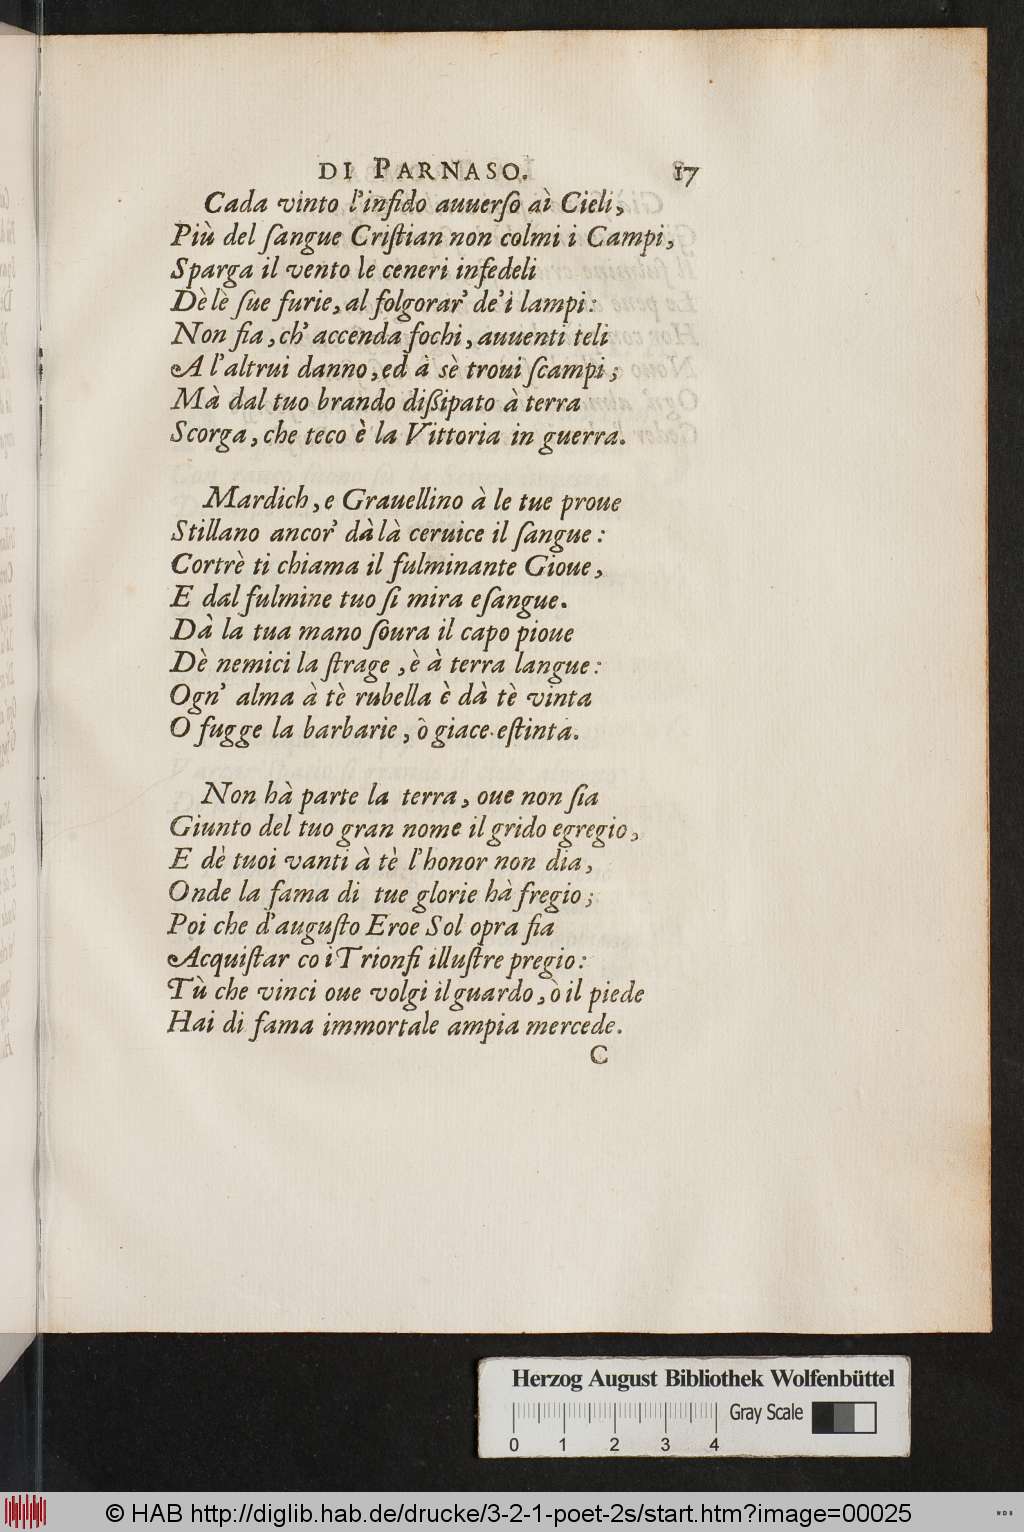 DI PARNASO. 17
Cada vinto l'infido auuerſo aì Cieli,
Più del ſangue Criſtian non colmi i Campi,
Sparga il vento le ceneri infedeli
Dè lè ſue furie, al folgorar' de'i lampi:
Non fia, ch' accenda fochi, auuenti teli
A l'altrui danno, ed à sè troui ſcampi;
Mà dal tuo brando diſſipato à terra
Scorga, che teco è la Vittoria in guerra.
Mardich, e Grauellino à le tue proue
Stillano ancor' dà là ceruice il ſangue:
Cortrè ti chiama il fulminante Gioue,
E dal fulmine tuo ſi mira eſangue.
Dà la tua mano ſoura il capo pioue
Dè nemici la ſtrage, è à terra langue:
Ogn' alma à tè rubella è dà tè vinta
O fugge la barbarie, ò giace eſtinta.
Non hà parte la terra, oue non ſia
Giunto del tuo gran nome il grido egregio,
E dè tuoi vanti à tè l'honor non dia,
Onde la fama di tue glorie hà fregio;
Poi che d'auguſto Eroe Sol opra fia
Acquiſtar co i Trionfi illuſtre pregio:
Tù che vinci oue volgi il guardo, ò il piede
Hai di fama immortale ampia mercede.
C
Herzog August Bibliothek Wolfenbüttel
Gray Scale
0 1 2 3 4
© HAB http://diglib.hab.de/drucke/3-2-1-poet-2s/start.htm?image=00025